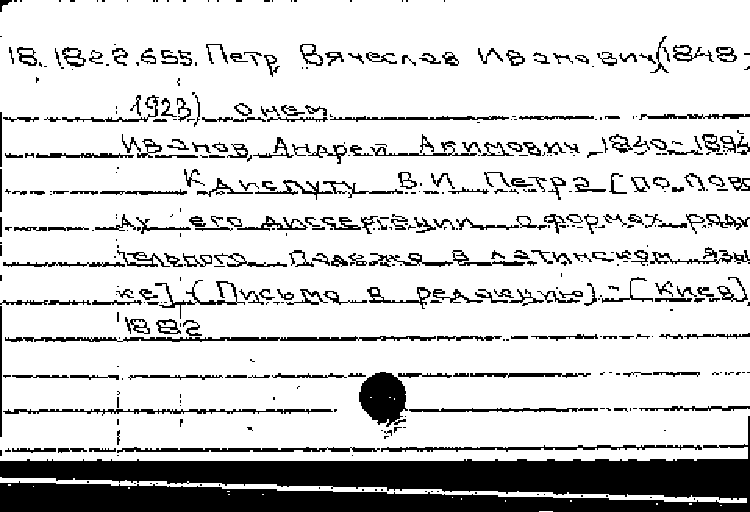 18. 18.2.2.655. Петр Вячеслав Иванович (1848-
1923) о нем
Иванов, Андрей Акимович, 1840-1894
К диспуту В.И. Петра [по пово
ду его диссертации о формах роди
тельного падежа в латинском язы
ке] (Письмо в редакцию). - [Киев]
1882